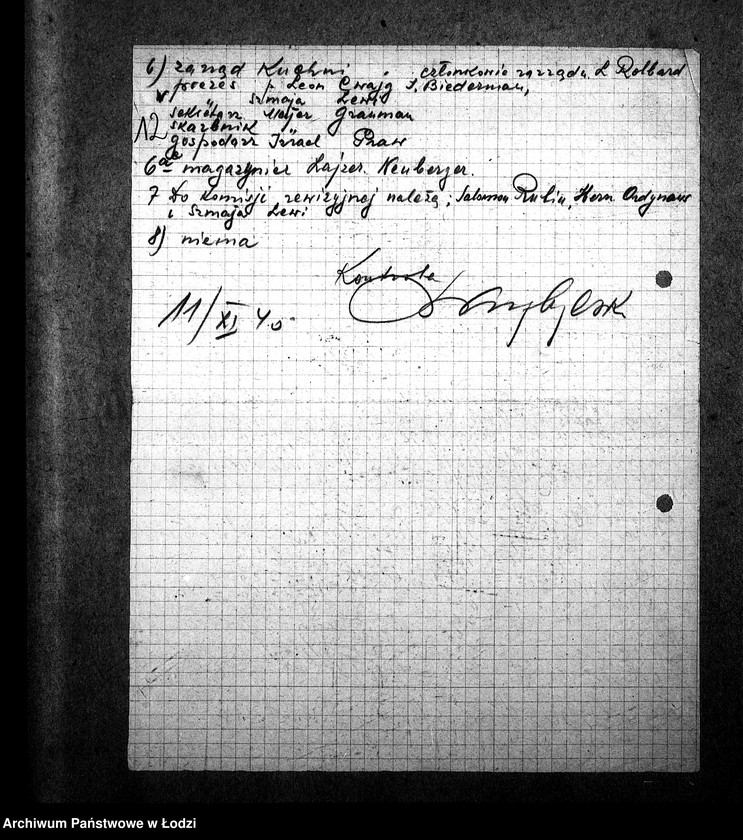 6) zarząd Kuchni . członkowie zarządu L Rolbard
prezes p. Leon Cwajg S. Biederman,
v Szmaja Lewi
sekretarz Majer Grauman
12 skarbnik "
gospodarz Israel Praw
6a magazynier Lajzer Neuberger.
7 Do Komisji rewizyjnej należą; Salomon Rubin, Hern Ordynans
i Szmaja Lewi
8) niema
Kontrola
11/XI 40
Archiwum Państwowe w Łodzi